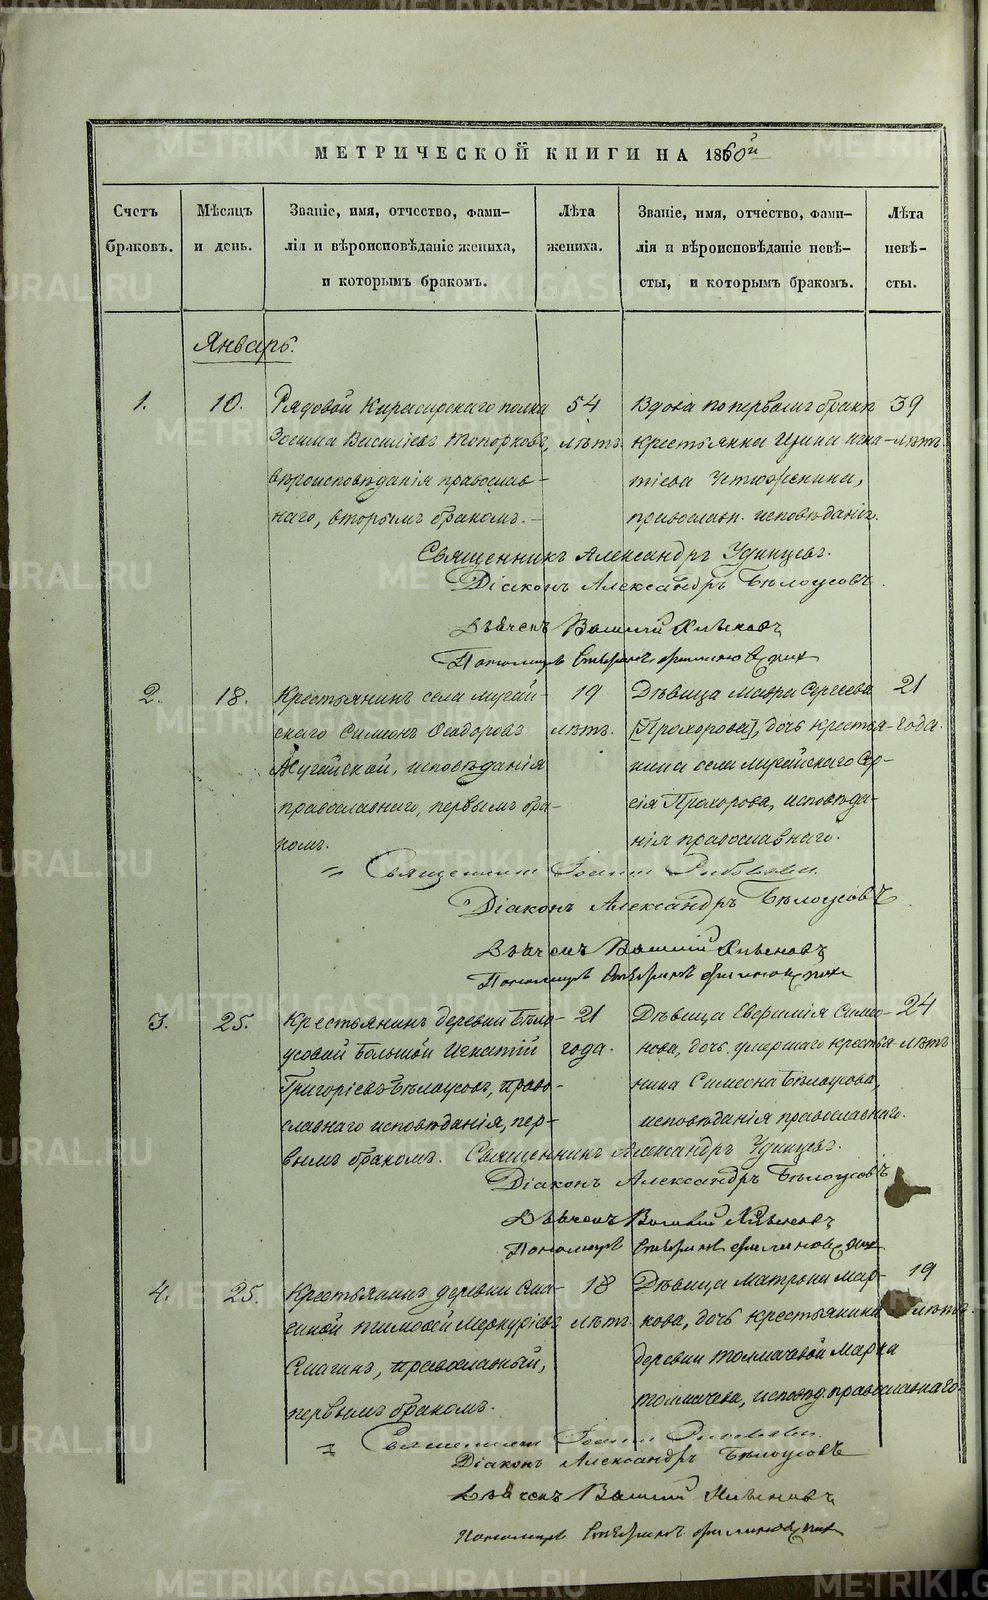 МЕТРИЧЕСКОЙ КНИГИ НА 1860й
Счетъ браковъ.
Мѣсяцъ и день.
Званіе, имя, отчество, фами-
лія и вѣроисповѣданіе жениха,
и которымъ бракомъ.
Лѣта жениха.
Званіе, имя, отчество, фами-
лія и вѣроисповѣданіе невѣ-
сты, и которымъ бракомъ.
Лѣта невѣ-
сты.
Январь.
1.
10.
Рядовой Кирасирскаго полка
Зосима Василіевъ Топорковъ,
вѣроисповѣданія православ-
наго, вторымъ бракомъ.
54
лѣтъ.
Вдова по первомъ бракѣ
крестьянка Ирина Игна-
тіева Устюжснина,
православн. исповѣданія.
39
лѣтъ.
Священникъ Александръ Удинцевъ.
Діаконъ Александръ Бѣлоусовъ.
Дьячекъ Василій
Пономарь
2.
18.
Крестьянинъ села Мугай-
скаго Симеонъ Ѳеодоровъ
Мугайской, исповѣданія
православнаго, первымъ бра-
комъ.
19
лѣтъ.
Дѣвица Мавра Сергеева
[Прохорова], дочь крестья-
нина села Мугайскаго Сер-
гія Прохорова, исповѣда-
нія православнаго.
21
года.
Священникъ Іоаннъ
Діаконъ Александръ Бѣлоусовъ
Дьячекъ Василій
Пономарь
3.
25.
Крестьянинъ деревни Бѣло-
усовой Большой Игнатій
Григоріевъ Бѣлоусовъ, право-
славнаго исповѣданія, пер-
вымъ бракомъ.
21
года.
Дѣвица Евфимія Симео-
нова, дочь умершаго крестья-
нина Симеона Бѣлоусова,
исповѣданія православнаго.
24
лѣтъ
Священникъ Александръ Удинцевъ.
Діаконъ Александръ Бѣлоусовъ
Дьячекъ Василій
Пономарь
4.
25.
Крестьянинъ деревни Сма-
гиной Тимофей Меркуріевъ
Смагинъ, православный,
первымъ бракомъ.
18
лѣтъ.
Дѣвица Матрона Мар-
кова, дочь крестьянина
деревни Толмачевой Марка
Толмачева, исповѣд. православнаго.
19
лѣтъ.
Священникъ Іоаннъ
Діаконъ Александръ Бѣлоусовъ
Дьячекъ Василій
Пономарь
METRIKI.GASO-URAL.RU